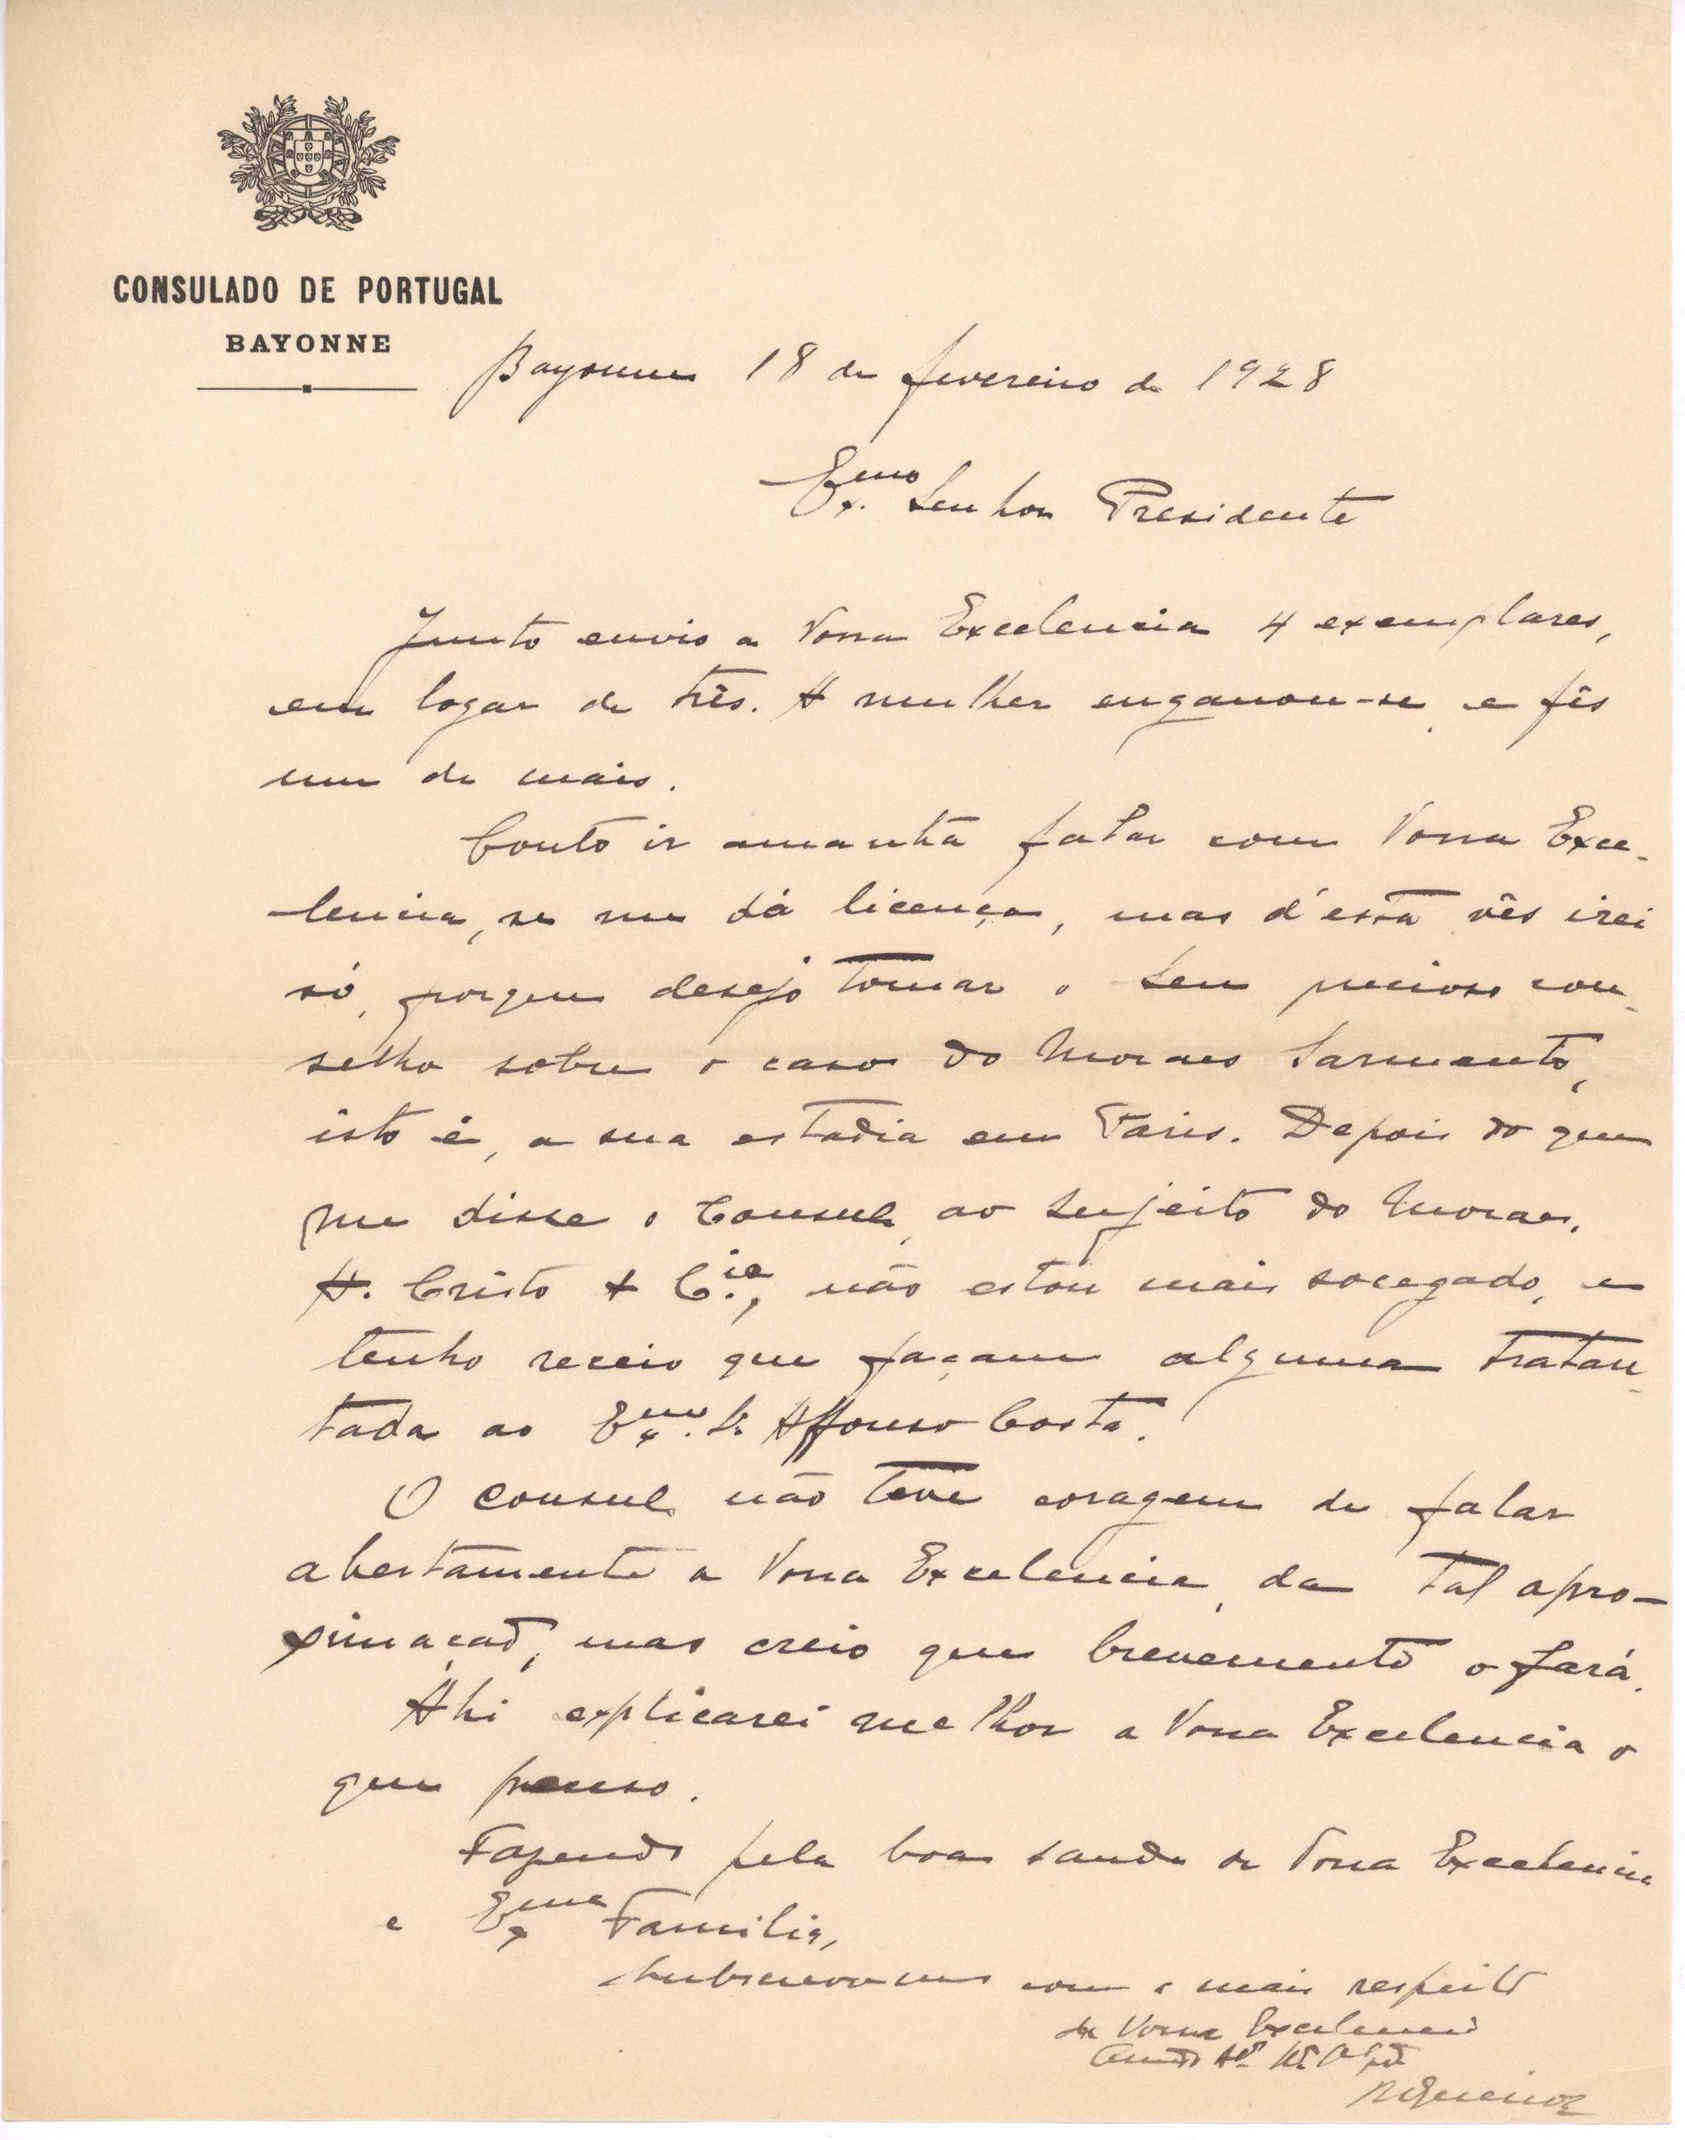 CONSULADO DE PORTUGAL
BAYONNE
Bayonne 18 de fevereiro de 1928
Ex.mo Senhor Presidente
Junto envio a Vossa Excelencia 4 exemplares,
em logar de três. A mulher enganou-se, e fês
um de mais.
Conto ir amanhã falar com Vossa Exce-
lencia, se me dá licença, mas d'esta vês irei
só, porque desejo tomar o seu precioso con-
selho sobre o caso do Moraes Sarmento,
isto é, a sua estadia em Paris. Depois do que
me disse o Consul, ao sujeito do Moraes,
H. Cristo & C.ia, não estou mais socegado, e
tenho receio que façam alguma tratan-
tada ao Ex.mo Sr. Affonso Costa.
O consul não teve coragem de falar
abertamente a Vossa Excelencia, da tal apro-
ximação, mas creio que brevemente o fará.
Ahi explicarei melhor a Vossa Excelencia o
que penso.
Fazendo pela boa saude de Vossa Excelencia
e Exma Familia,
subscrevo-me com o mais respeito
de Vossa Excelencia